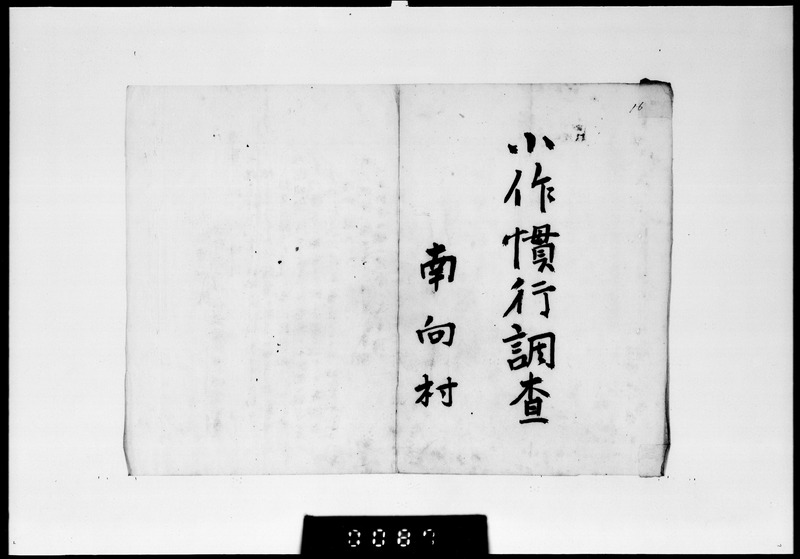 16
小作慣行調査
南向村
0087